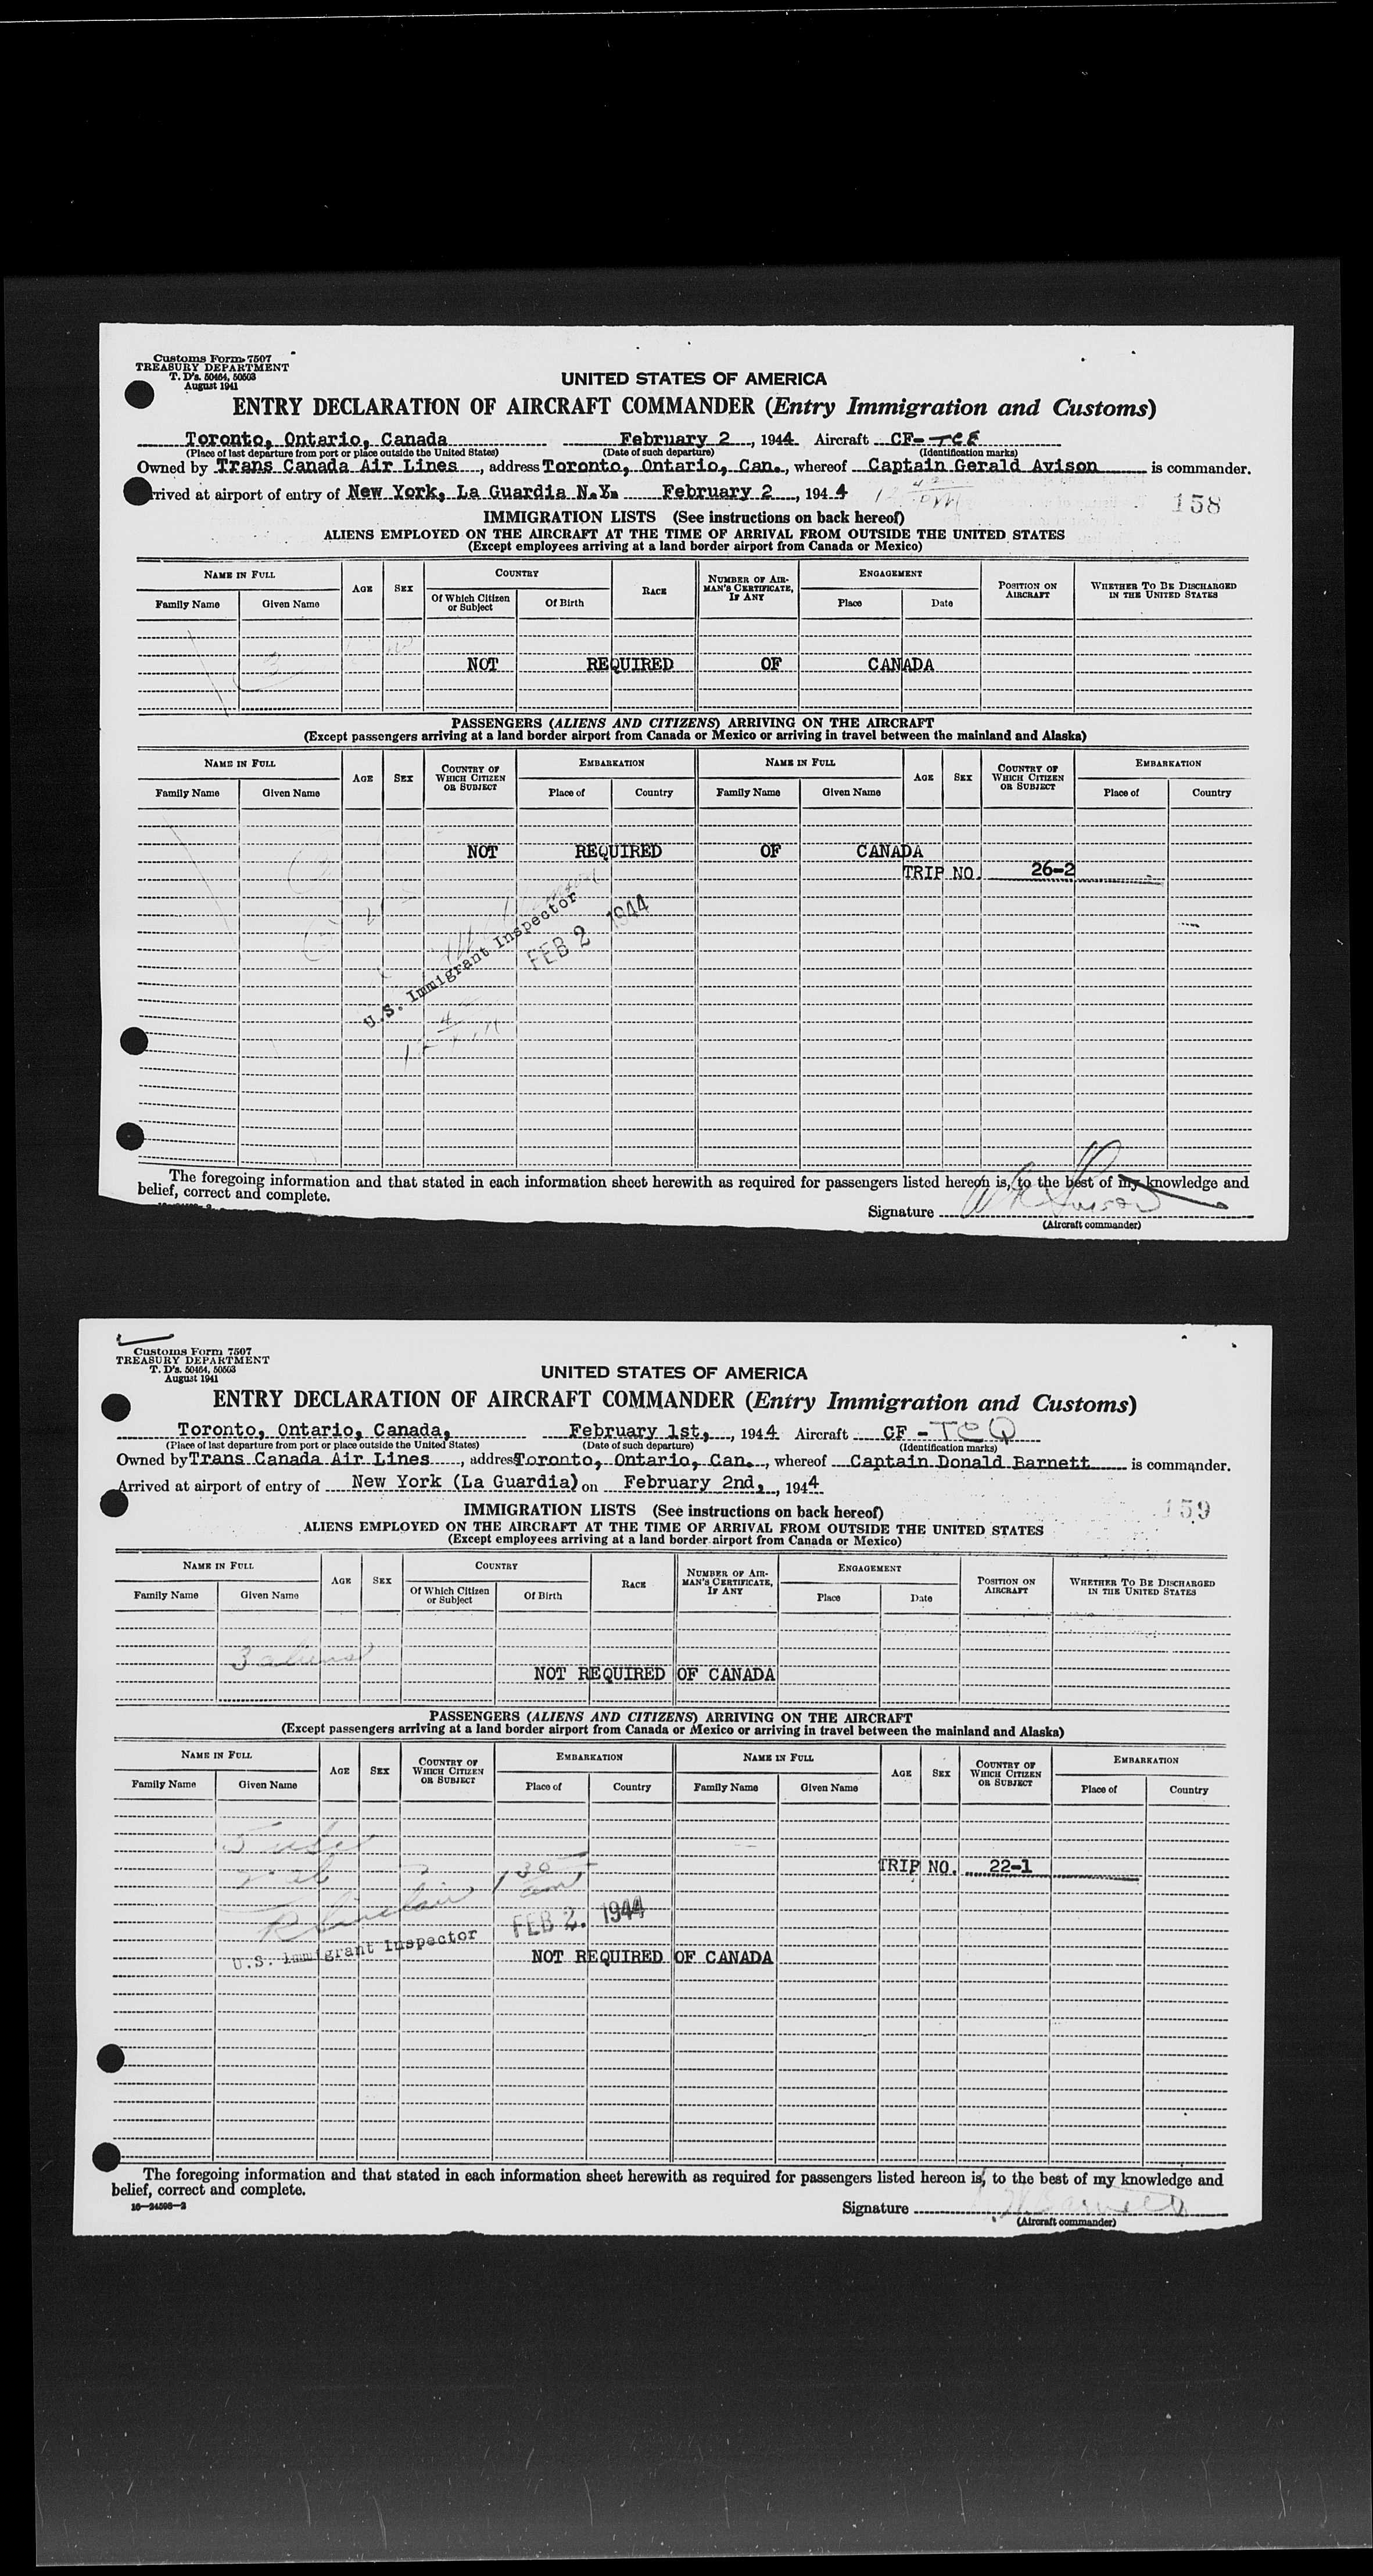 Customs Form 7507
TREASURY DEPARTMENT
T. D's. 50464, 50503
August 1941
UNITED STATES OF AMERICA
ENTRY DECLARATION OF AIRCRAFT COMMANDER (Entry Immigration and Customs)
Toronto, Ontario, Canada February 2, 1944 Aircraft CF-TCE
(Place of last departure from port or place outside the United States) (Date of such departure) (Identification marks)
Owned by Trans Canada Air Lines, address Toronto, Ontario, Can., whereof Captain Gerald Avison is commander.
rived at airport of entry of New York, La Guardia N.Y. February 2, 1944
158
IMMIGRATION LISTS (See instructions on back hereof)
ALIENS EMPLOYED ON THE AIRCRAFT AT THE TIME OF ARRIVAL FROM OUTSIDE THE UNITED STATES
(Except employees arriving at a land border airport from Canada or Mexico)
NAME IN FULL AGE SEX COUNTRY RACE NUMBER OF AIRMAN'S CERTIFICATE, IF ANY ENGAGEMENT POSITION ON AIRCRAFT WHETHER TO BE DISCHARGED IN THE UNITED STATES
Family Name Given Name Of Which Citizen or Subject Of Birth Place Date
3
NOT REQUIRED OF CANADA
PASSENGERS (ALIENS AND CITIZENS) ARRIVING ON THE AIRCRAFT
(Except passengers arriving at a land border airport from Canada or Mexico or arriving in travel between the mainland and Alaska)
NAME IN FULL AGE SEX COUNTRY OF WHICH CITIZEN OR SUBJECT EMBARKATION NAME IN FULL AGE SEX COUNTRY OF WHICH CITIZEN OR SUBJECT EMBARKATION
Family Name Given Name Place of Country Family Name Given Name Place of Country
NOT REQUIRED OF CANADA
TRIP NO. 26-2
U.S. Immigrant Inspector
FEB 2 1944
The foregoing information and that stated in each information sheet herewith as required for passengers listed hereon is, to the best of my knowledge and
belief, correct and complete.
Signature
(Aircraft commander)
Customs Form 7507
TREASURY DEPARTMENT
T. D's. 50464, 50503
August 1941
UNITED STATES OF AMERICA
ENTRY DECLARATION OF AIRCRAFT COMMANDER (Entry Immigration and Customs)
Toronto, Ontario, Canada, February 1st, 1944 Aircraft CF - TCQ
(Place of last departure from port or place outside the United States) (Date of such departure) (Identification marks)
Owned by Trans Canada Air Lines, address Toronto, Ontario, Can., whereof Captain Donald Barnett is commander.
Arrived at airport of entry of New York (La Guardia) on February 2nd, 1944
159
IMMIGRATION LISTS (See instructions on back hereof)
ALIENS EMPLOYED ON THE AIRCRAFT AT THE TIME OF ARRIVAL FROM OUTSIDE THE UNITED STATES
(Except employees arriving at a land border airport from Canada or Mexico)
NAME IN FULL AGE SEX COUNTRY RACE NUMBER OF AIRMAN'S CERTIFICATE, IF ANY ENGAGEMENT POSITION ON AIRCRAFT WHETHER TO BE DISCHARGED IN THE UNITED STATES
Family Name Given Name Of Which Citizen or Subject Of Birth Place Date
3 aliens
NOT REQUIRED OF CANADA
PASSENGERS (ALIENS AND CITIZENS) ARRIVING ON THE AIRCRAFT
(Except passengers arriving at a land border airport from Canada or Mexico or arriving in travel between the mainland and Alaska)
NAME IN FULL AGE SEX COUNTRY OF WHICH CITIZEN OR SUBJECT EMBARKATION NAME IN FULL AGE SEX COUNTRY OF WHICH CITIZEN OR SUBJECT EMBARKATION
Family Name Given Name Place of Country Family Name Given Name Place of Country
1 30 am
TRIP NO. 22-1
R Sinclair
FEB 2. 1944
U.S. Immigrant Inspector
NOT REQUIRED OF CANADA
The foregoing information and that stated in each information sheet herewith as required for passengers listed hereon is, to the best of my knowledge and
belief, correct and complete.
16—24598—2
Signature Barnett
(Aircraft commander)